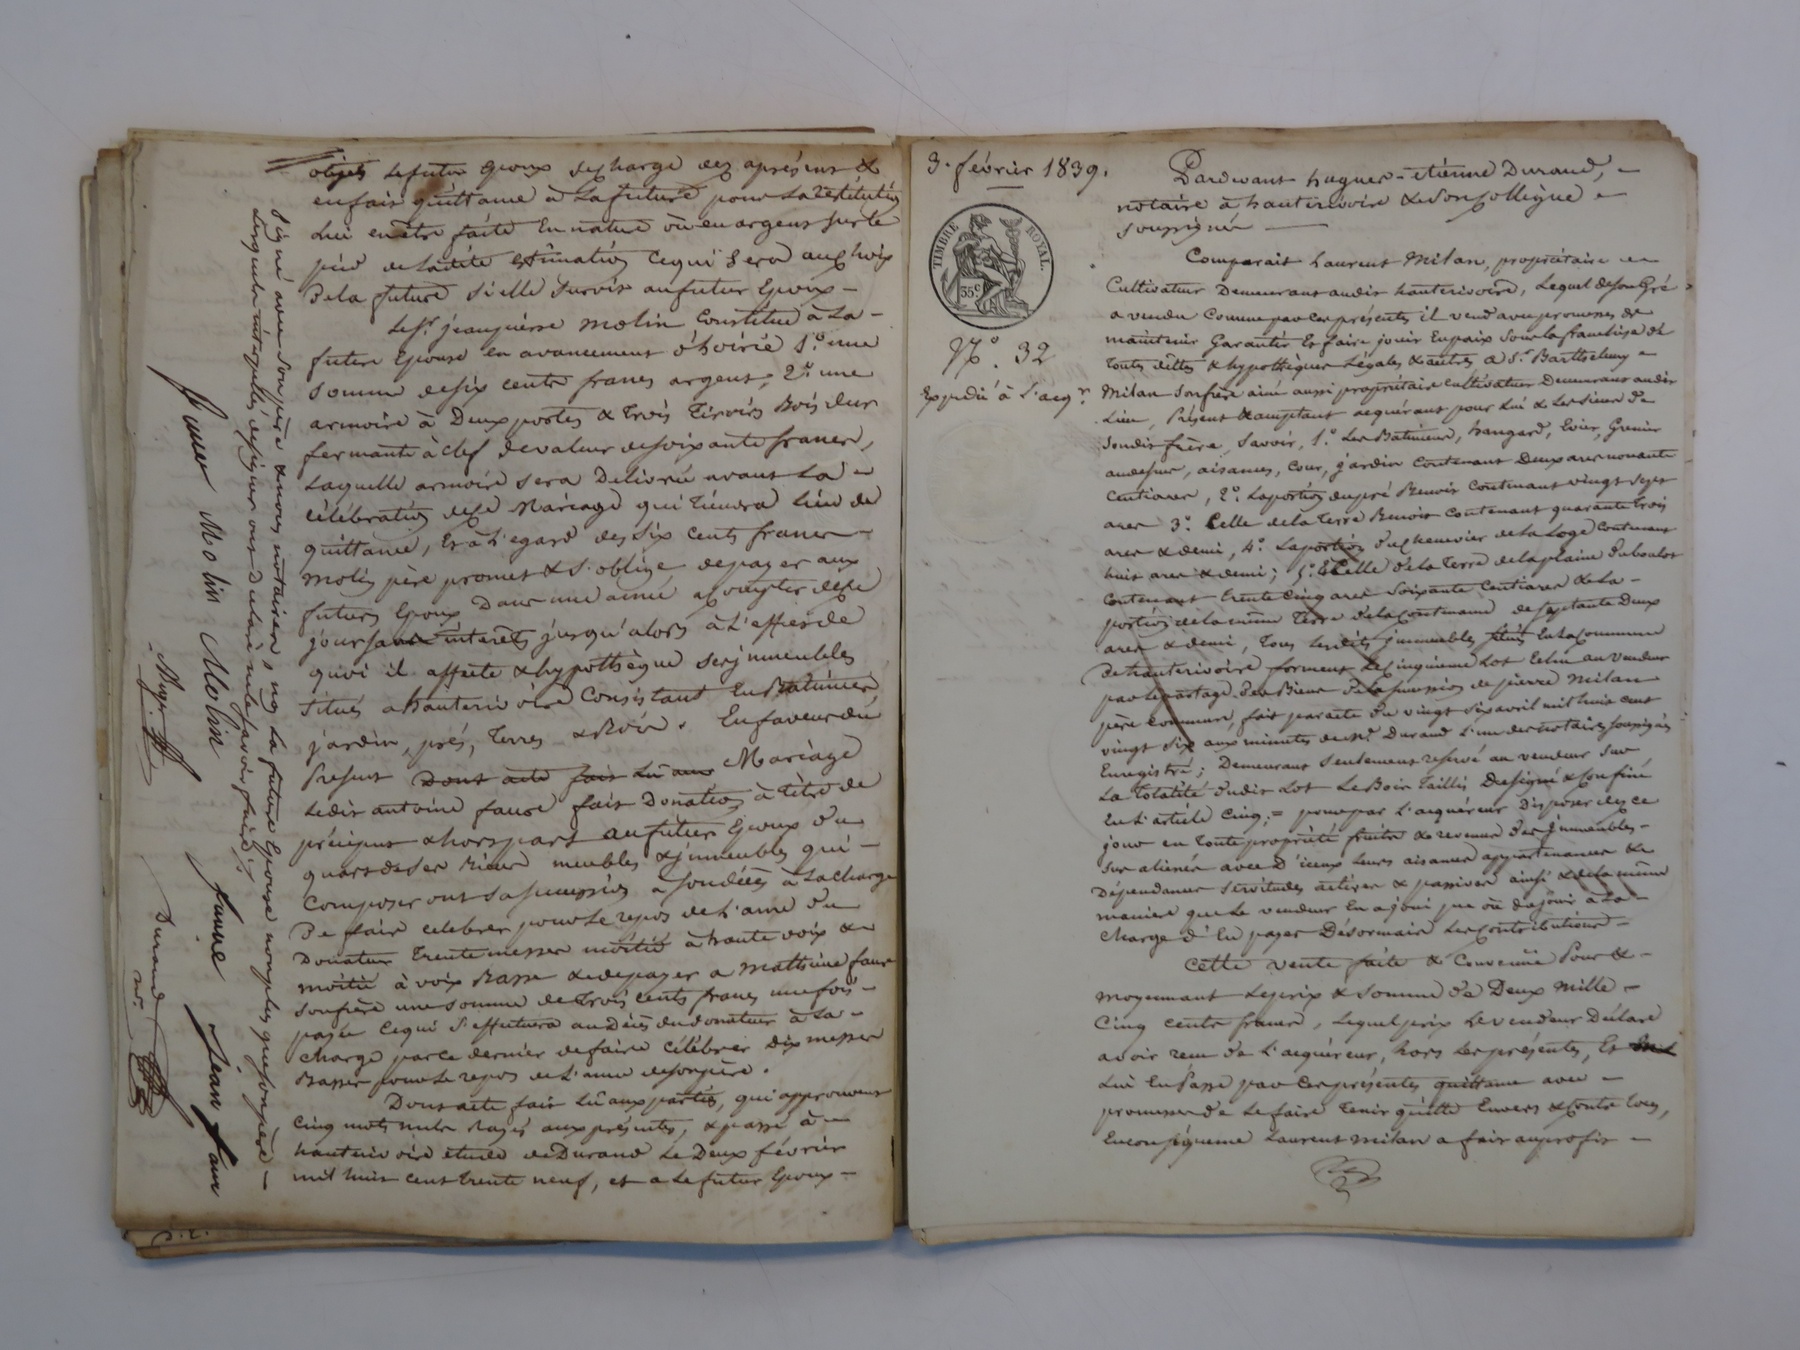 objets le futur Epoux se charge dez aprésent &
en fait quittance à La future pour La restitution
Lui en être faite En nature où en argent sur le
pied de ladite estimation ce qui sera au choix
De la future si elle survit au futur Epoux –
Le Sr. jean pierre Molin Constitue à La –
future Epouse en avancement d'hoirie 1°. une
somme de six cents francs argent, 2°. une
armoire à Deux portes & trois tiroirs Bois dur
fermante à clef de valeur de soixante francs,
Laquelle armoire sera Délivrée avant La –
célébration dud. Mariage qui tiendra Lieu de
quittance, Et à L'égard des Six Cents francs –
Molin père promet & s'oblige de payer aux
futurs Epoux Dans une année a compter de ce
jour sans intérêts jusqu'alors à L'effet de
quoi il affecte & hypothèque ses jmmeubles
situés a hauterivoire Consistant En Batiments
jardin, prés, Terres & Bois. En faveur du
Présent Dont acte fait Lu aux Mariage
Ledit antoine faure fait Donation à titre de
préciput & hors part au futur Epoux du
quart de ses Biens meubles & jmmeubles qui –
Composeront sa succession à son décès à La charge
De faire célébrer pour Le repos de L'ame du
Donateur Trente messes moitié à haute voix &
moitié à voix Basse & de payer a Mathieu faure
son frère une somme de trois cents francs une fois –
payée Ce qui s'effectuera au Décès du donateur à La –
charge par ce dernier de faire célébrer Dix messes
Basses pour Le repos de L'ame de son père.
Dont acte fait Lu aux parties, qui approuvent
cinq mots nuls rayés aux présentes, & passé à –
hauterivoire étude de Durand Le Deux février
mil huit cent trente neuf, et a Le futur Epoux –
signé avec son père & nous notaires, non La future Epouse non plus que son père –
Lesquels interpellés de signer ont Déclaré ne le savoir faire
faure Molin Molin faure Jean faure
Durand
nre.
3. février 1839.
TIMBRE ROYAL.
35c
N°. 32
Expédié à L'acqr.
Pardevant hugues-étienne Durand, –
notaire à hauterivoire & son Collègue –
soussignés –
Comparait Laurent Milan, propriétaire –
Cultivateur Demeurant audit hauterivoire, Lequel de son Gré
a vendu Comme par ces présentes il vend avec promesses de
maintenir Garantir Et faire jouir En paix sous la franchise de
toutes dettes & hypothèques Légales & autres, a Sr. Barthelemy –
Milan son frère ainé aussi propriétaire cultivateur Demeurant audit
Lieu, Présent & acceptant acquérant pour Lui & Les siens de
sondit frère, savoir, 1°. Les Batiments, hangard, Evier, Grenier
au dessus, aisances, Cour, jardin Contenant Deux ares nonante
Centiares, 2°. La portion du pré Benoit Contenant vingt sept
ares 3°. Celle de la Terre Benoit Contenant quarante trois
ares & demi, 4°. La portion du chenevier de la Loge Contenant
huit ares & demi; 5°. Celle de la Terre de la plaine du boulot
Contenant trente Cinq ares soixante Centiares & La –
portion de la même Terre de la Contenance de septante Deux
ares & demi, Tous Lesdits jmmeubles situés En la Commune
de hauterivoire forment Le Cinquième Lot Echu au vendeur
par Le partage des Biens de la succession de pierre Milan
père commun, fait par acte du vingt six avril mil huit cent
vingt six aux minutes de Me. Durand L'un des notaires soussignés
Enregistré; Demeurant seulement réservé au vendeur sur
La Totalité dudit Lot Le Bois Taillis Désigné & Confiné
En L'article Cinq; = pour par L'acquéreur Disposer dez ce
jour en toute propriété fruits & revenus Des Jmmeubles –
sus aliénés avec D'iceux Leurs aisances appartenances &
Dépendances servitudes actives & passives ainsi & de la même
maniere que Le vendeur En a joui pu où dû jouir à La –
charge d'En payer Désormais Les Contributions –
Cette vente faite & Convenuë Pour & –
moyennant Le prix & somme de Deux Mille –
Cinq cents francs, Lequel prix Le vendeur Déclare
avoir reçu de L'acquéreur, hors Les présentes, Et
Lui En Passe par Ces présentes quittance avec –
promesse de Le faire tenir quitte Envers & Contre tous,
En conséquence Laurent Milan a fait au profit –